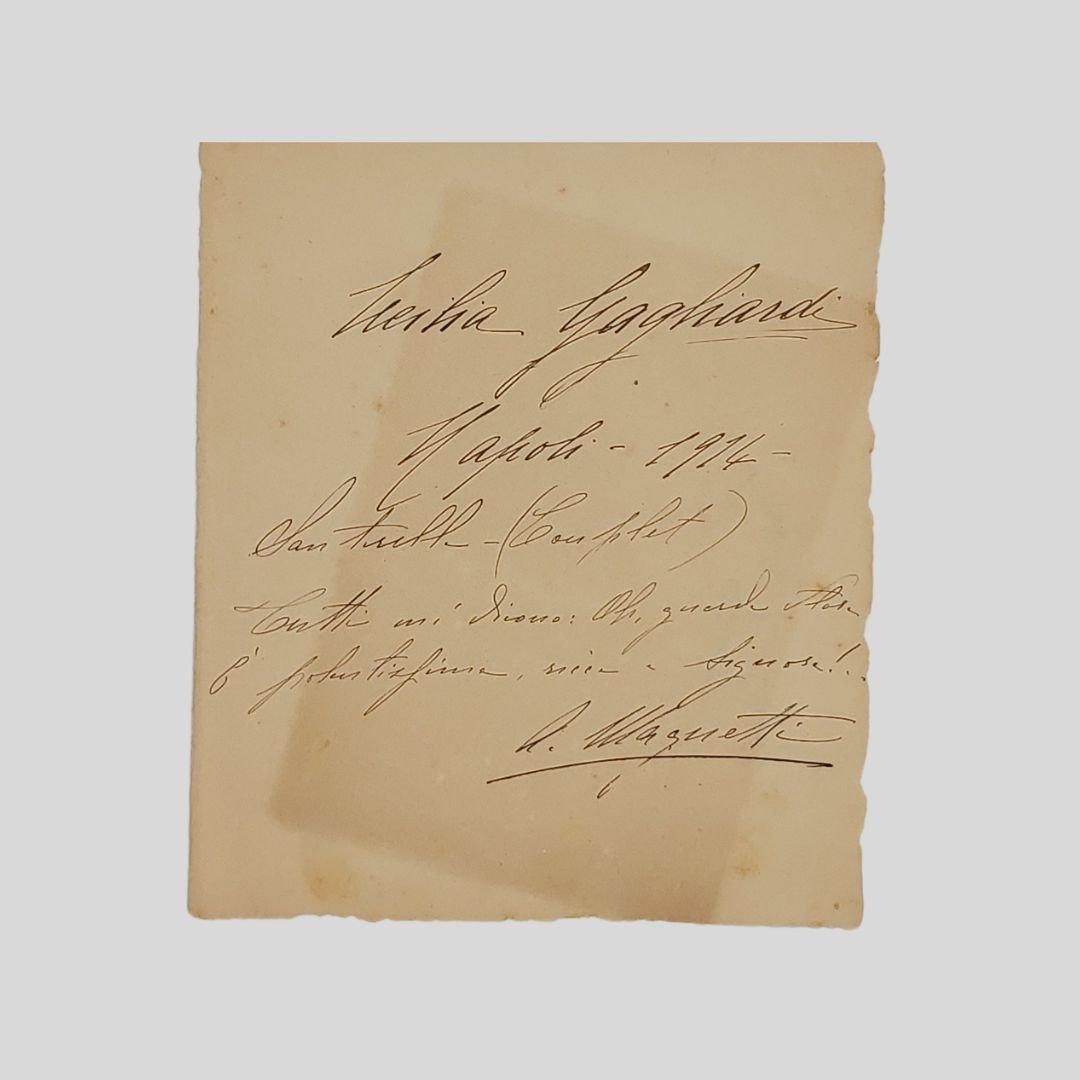 Cecilia Gagliardi
Napoli - 1914 -
(Couplet)
Tutti mi dicono: Oh, guarda
È potentissima, ricca e signora!..
A. Magnetti